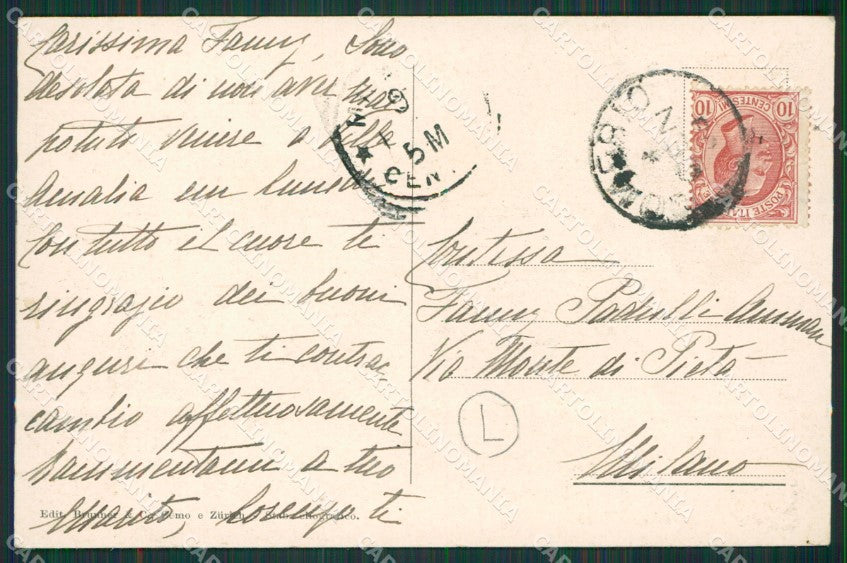 Carissima Fanny, Sono
desolata di non aver mai
potuto venire a Villa
Amalia un lunedì
Con tutto il cuore ti
ringrazio dei buoni
auguri che ti contrac
cambio affettuosamente
Rammentami a tuo
Marito, ti
Edit. Brunner & C., Como e Zürich.
Contessa
Fanny Padulli
Via Monte di Pietà
Milano
L
10
10
CENTESMI
POSTE ITAL
5 M